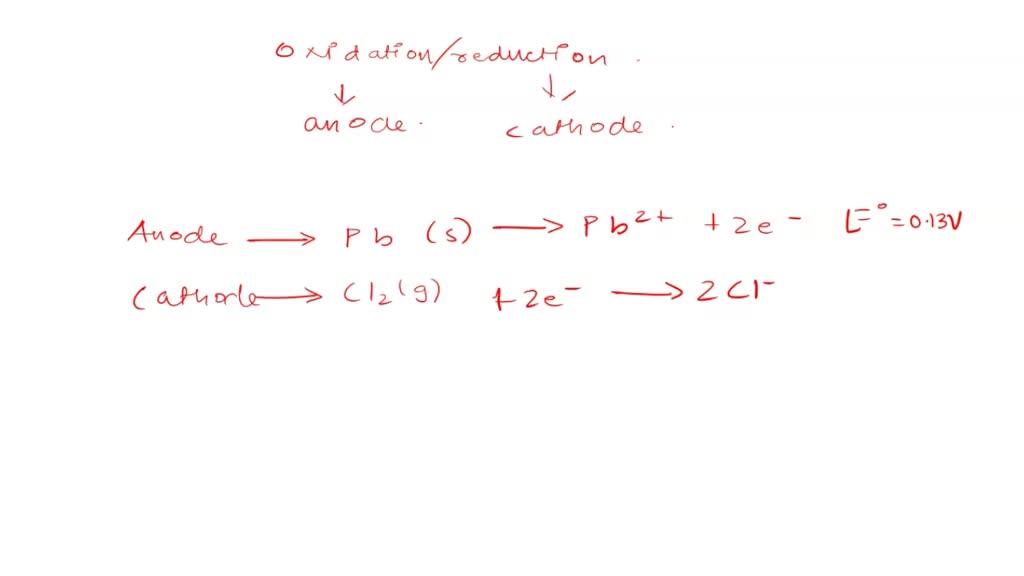 Oxidation/reduction .
↓ ↓
anode . cathode .
Anode → Pb (s) → Pb²⁺ + 2e⁻ E° = 0.13V
Cathode → Cl₂(g) + 2e⁻ → 2Cl⁻